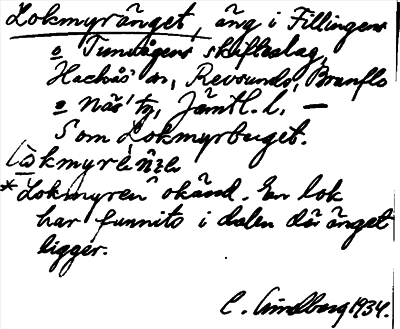 Lokmyränget, äng i Fillingens
o Tunstigens skifteslag,
Hackås sn, Revsunds, Brunflo
o Näs' tg, Jämtl. l. —
Som Lokmyrberget.
*"Lokmyren" okänd. En lok
har funnits i dalen där änget
ligger.
C. Lindberg 1934.